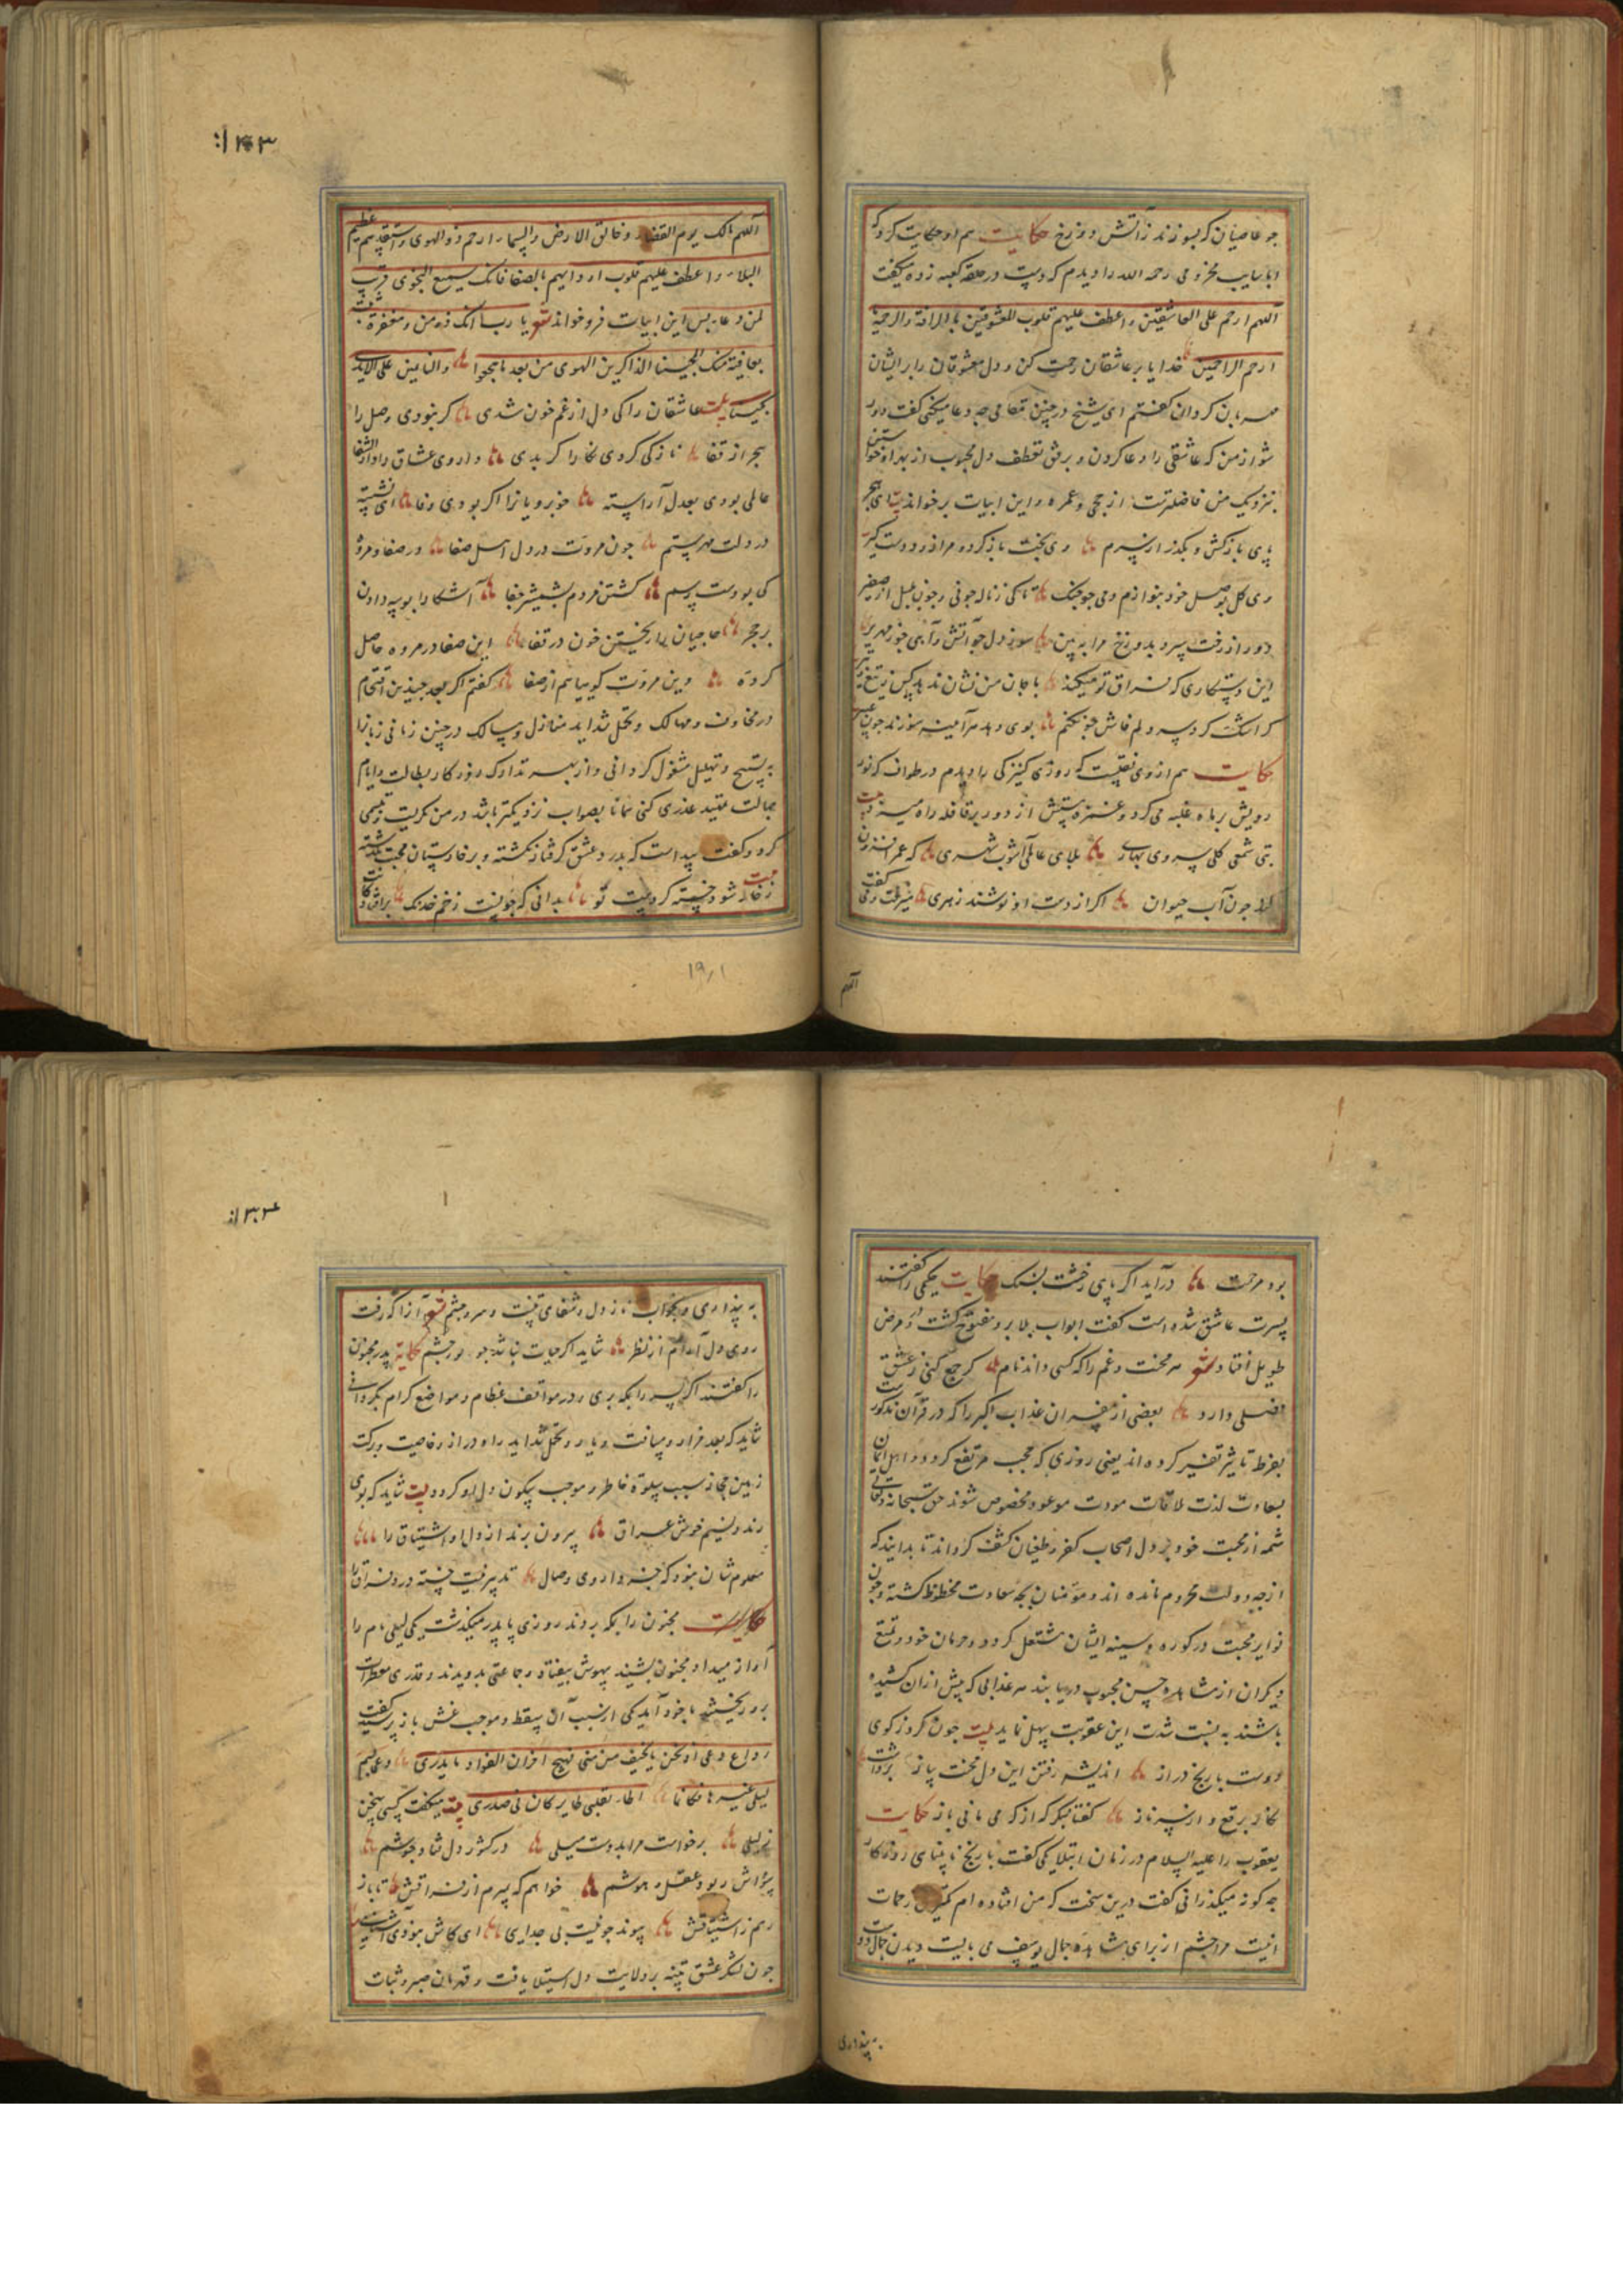 جو عاصیان که بسوزند زآتش دوزخ حکایت هم او حکایت کرد که
مخزومی رحمه الله را دیدم که دست در حلقه کعبه زده میکفت
اللهم ارحم علی العاشقین واعطف علیهم قلوب المعشوقین بالرافة والرحمة
ارحم الراحمین خدایا بر عاشقان رحمت کن و دل معشوقان را بر ایشان
مهربان کردان کفتم ای شیخ در چنین مقامی چه دعا میکنی کفت دور
شو از من که عاشقی را دعا کردن و برفق تعطف دل محبوب از بهر او خواستن
بنزدیک من فاضلترست از حجی وعمره واین ابیات برخواند بیت ای هجر
پای بازکش و بکذر از سرم وی بخت بازکرد و مرا زود دست کیر
وی کل بوصل خود بنوازم دمی جو جنک تا کی زناله جونی وجون بلبل از صفیر
دور از رخت بدوزخ مرا ببین سوز دل جو آتش و آهی جو زمهریر
این دستکاری که فراق تو میکند با جان من نشان ندهد کس زتیغ و تیر
کر اشک کرد سر دلم فاش جون کنم بوی دهد هر آینه سوزند جون عبیر
حکایت هم از وی نقلست که روزی کنیزکی را دیدم در طواف که نور
رویش بر ماه غلبه می کرد و غمزه مستش از دور بر قافله راه میزد بیت
بتی شمعی کلی سروی بهاری بلای عالمی آشوب شهری که عمر افزون
کند جون آب حیوان اکر از دست او نوشند زهری میرفت و می کفت
اللهم
۱۴۳
اللهم مالک یوم القضاء وخالق الارض والسماء ارحم ذوالهوی واستنقذهم من عظیم
البلاء واعطف علیهم قلوب اودایهم بالصفا فانک سمیع النجوی قریب
لمن دعا پس این ابیات فروخواند شعر یا رب انک ذو من ومغفرة
بعافیة منک المحبینا الذاکرین الهوی من بعد ما هجعوا والنایمین علی الایدی
محبینا بیت عاشقان را کی دل از غم خون شدی کر نبودی وصل را
هجر از قفا نازکی کردی نکارا کر بدی داروی عشاق را دار الشفا
عالمی بودی بعدل آراسته خوبرویانرا اکر بودی وفا ای نشسته
در دلت مهر ستم جون مروت در دل اهل صفا در صفا و مروه
کی بودست رسم کشتن مردم بشمشیر جفا آشکارا بوسه دادن
بر حجر حاجیان را ریختن خون در قفا این صفا در مروه حاصل
کرده وین مروت کو بیابم از صفا کفتم اکر بعد چندین اقتحام
در مخاوف ومهالک وتحمل شداید منازل ومسالک در چنین زمانی زبانرا
به تسبیح وتهلیل مشغول کردانی و از بهر تدارک روزکار بطالت وایام
جهالت تمهید عذری کنی همانا بصواب نزدیکتر باشد در من نکریست تبسمی
کرد وکفت پیداست که بدرد عشق کرفتار نکشته و بر خارستان محبت نکذشته بیت
زخار شود خسته کر دست تو بدانی که جونست زخم خدنک
۱۹۱
بود مرحمت درآید اکر پای رخشت بسنک حکایت حکیمی را کفتند
پسرت عاشق شده است کفت ابواب بلا برو مفتوح کشت و در مرض
طویل افتاد شعر هر محنت وغم را که کسی داند نام کر جمع کنی زعشق
اصلی دارد بعضی از مفسران عذاب اکبر را که در قرآن مذکورست
بفرط تاثیر تفسیر کرده اند یعنی روزی که حجب مرتفع کردد و اهل ایمان
بسعادت لذت ملاقات مودت موعود مخصوص شوند حق سبحانه وتعالی
شمه از محبت خود بر دل اصحاب کفر وطغیان کشف کرداند تا بدانند که
از چه دولت محروم مانده اند ومؤمنان بچه سعادت محظوظ کشته وجون
نوایر محبت در کوره سینه ایشان مشتعل کردد و حرمان خود و تمتع
دیکران از مشاهده حسن محبوب دریابند هر عذابی که پیش ازان کشیده
باشند به نسبت شدت این عقوبت سهل نماید بیت جون کرد ز کوی
دوست با رنج دراز اندیشه رفتن این دل محنت ساز برداشت
نکار برقع و از سر ناز کفتا بنکر که از که می مانی باز حکایت
یعقوب را علیه السلام در زمان ابتلا یکی کفت با رنج نابینای روزکار
چه کونه میکذرانی کفت درین سخت که من افتاده ام کمترین زحمات
اینست مرا چشم از برای مشاهده جمال یوسف می بایست دیدن جمال او
به پنداری
۱۴۴
به پنداری وبخواب ناز دل وشفای تنست وسرو چشم شعر آنرا که رفت
روی دل آرام از نظر شاید اکر حیات نباشد جو نور چشم حکایة پدر مجنون
را کفتند اکر پسر را بمکه بری و در مواقف عظام ومواضع کرام بکردانی
شاید که بعد مزار ومسافت دیار و تحمل شداید راه دراز و خاصیت وبرکت
زمین حجاز سبب سلوة خاطر وموجب سکون دل او کردد بیت شاید که بوی
رند ونسیم خوش عراق بیرون برند از دل او اشتیاق را
معلوم شان نبود که جز داروی وصال تدبیر نیست خسته درد فراق را
حکایت مجنون را بمکه بردند روزی با پدر میکذشت یکی لیلی نام را
آواز میداد مجنون بشنید بیهوش بیفتاد وجماعتی بدویدند و قدری معطرات
برو ریختند باخود آمد یکی از سبب آن سقط وموجب غش باز پرسید کفت
وداع دعی اذ نحن بالخیف من منی فهیج احزان الفؤاد وما یدری دعی باسم
لیلی غیرها فکانما اطار بقلبی طایرا کان فی صدری بیت میکفت کسی سخن
زلیلی برخواست مرا بدوست میلی در کشور دل فتاد جوشم
پژواش ربود عقل و هوشم خواهم که پرم از فراقش تا باز
رهم ز اشتیاقش پیوند جو نیست بی جدایی ای کاش نبودی آشنایی
جون لشکر عشق بتنبه بر ولایت دل استیلا یافت و قهرمان صبر وثبات